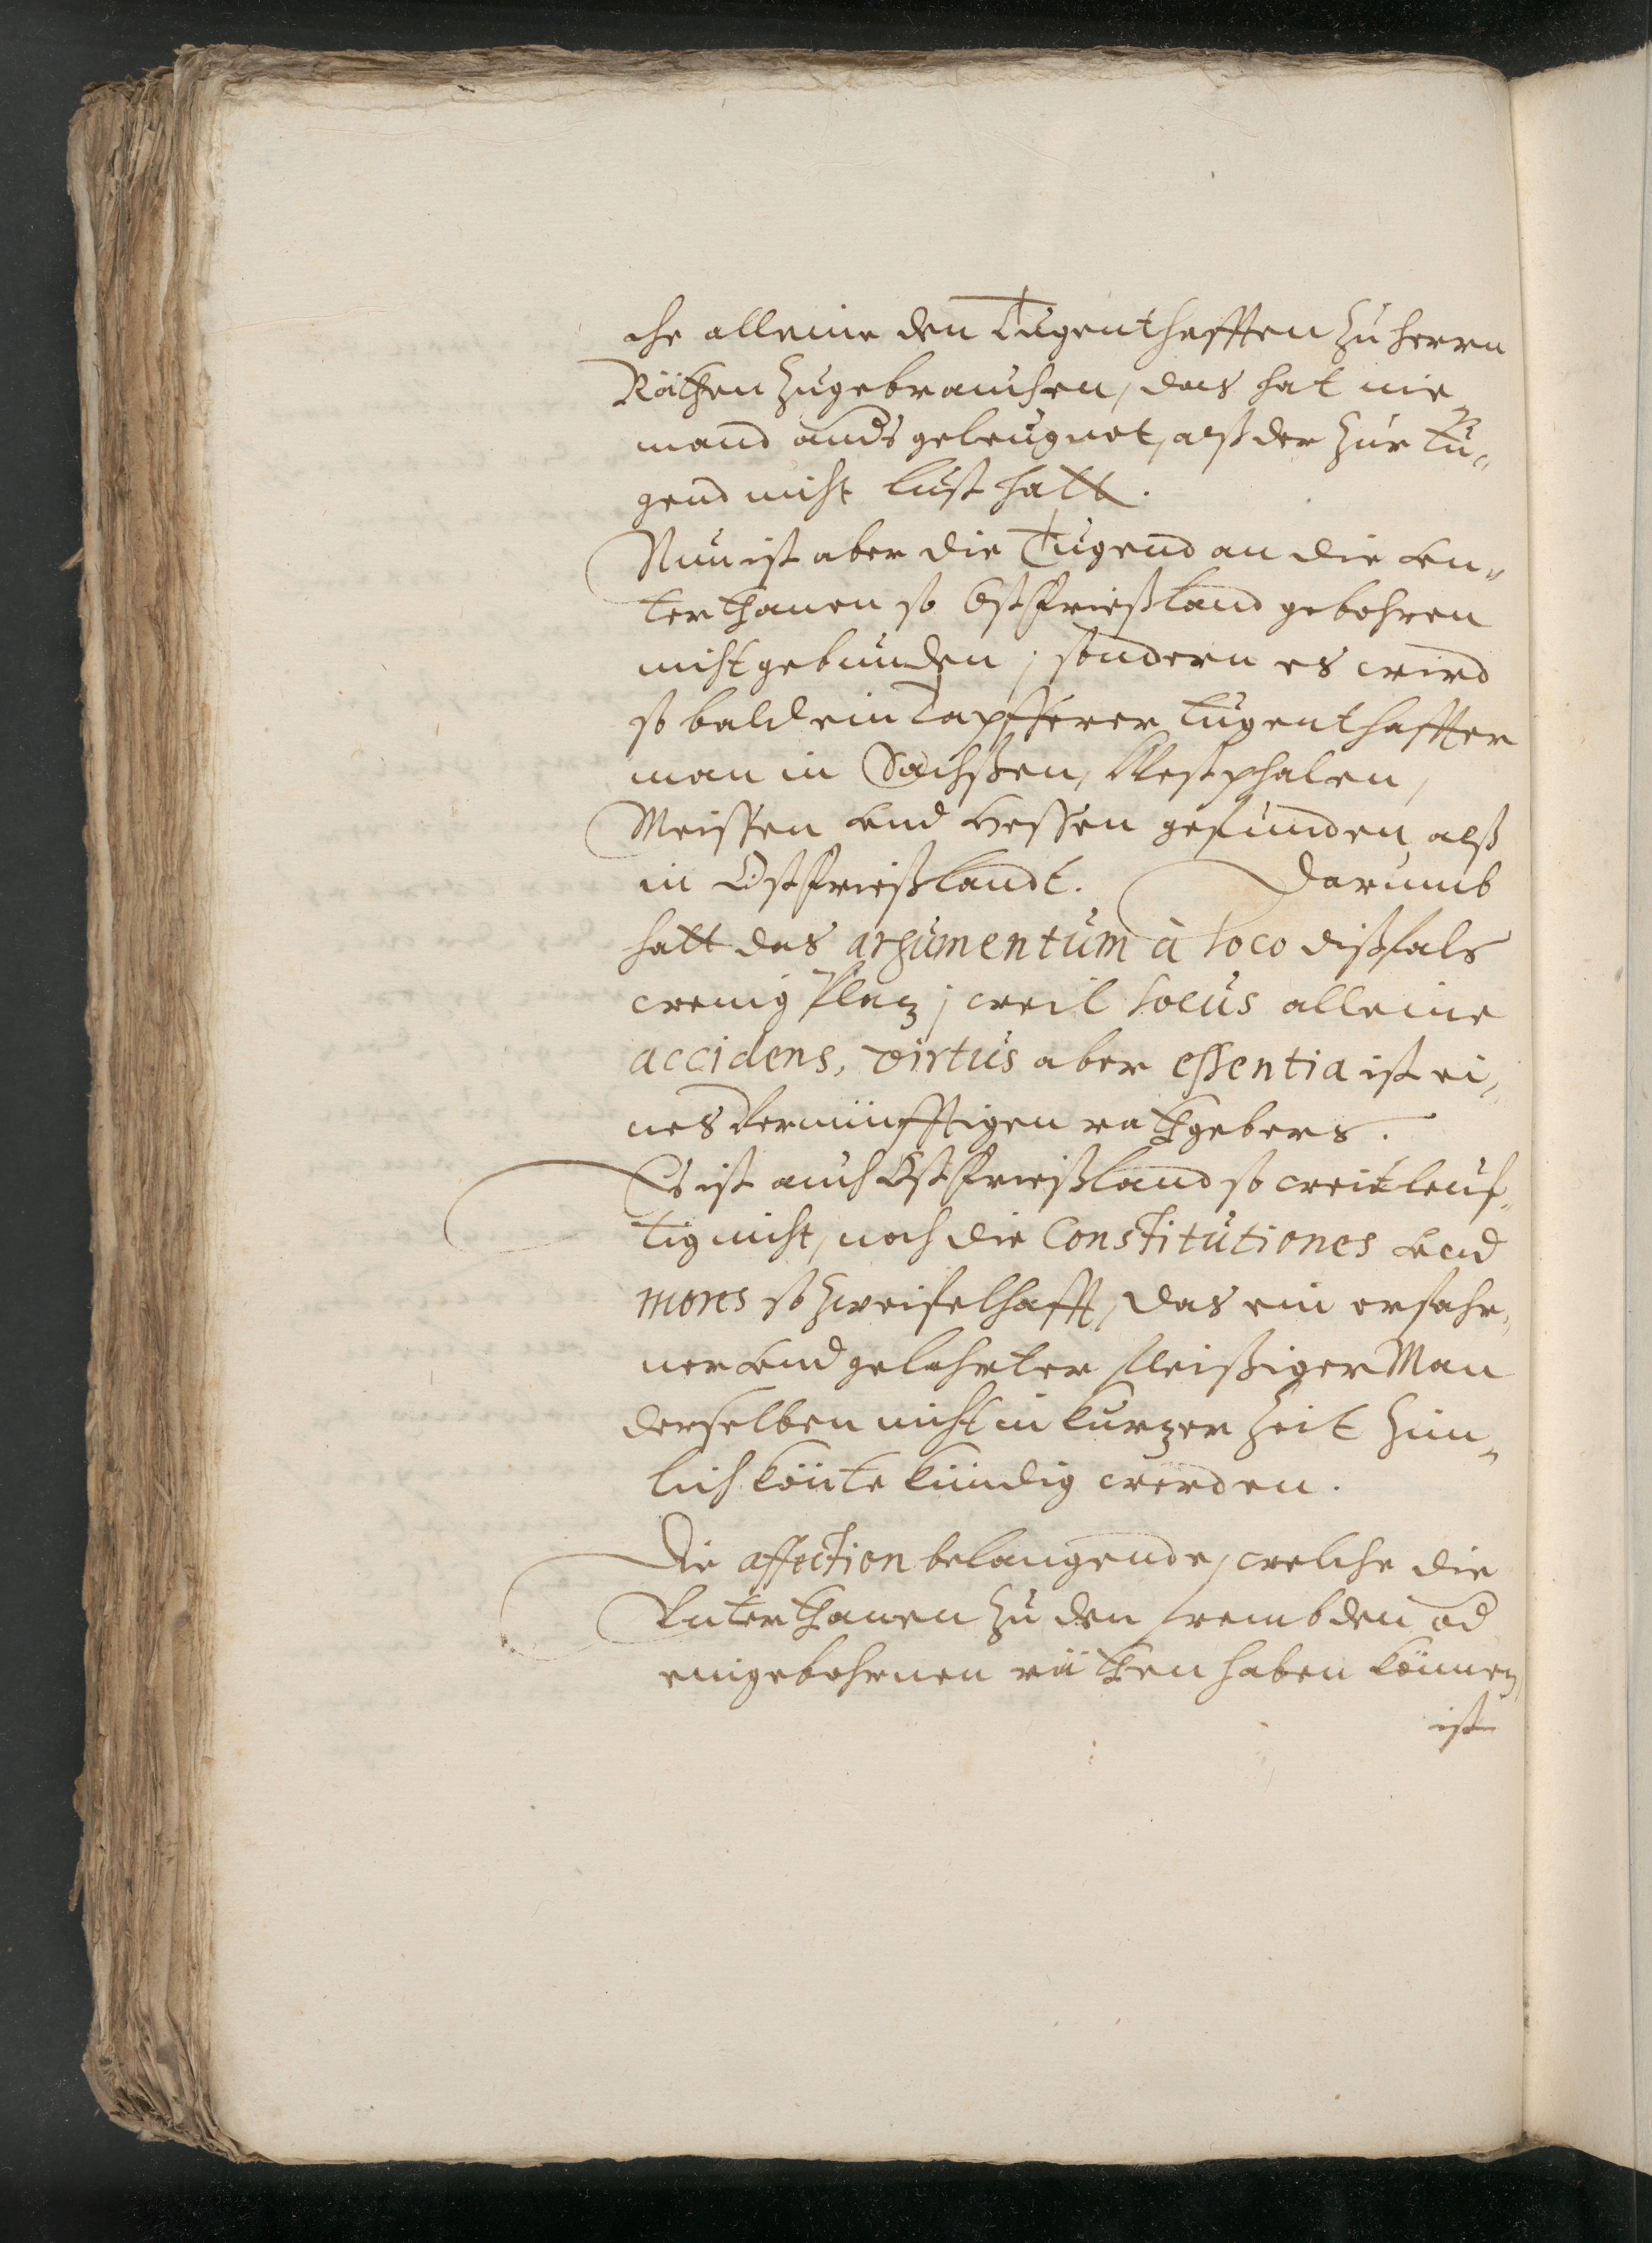 che alleine den Tugenthafften zu herrn
Räthen zugebrauchen, das hat nie¬
mand anders geleugnet, alß der zur Tu¬
gend nicht lust hatt.
Nun ist aber die Tugend an die Un¬
terthanen so Ostfrießland gebohren
nicht gebunden; sondern es wird
so bald ein Tapfferer tugenthaffter
man in Sachßen, Westphalen,
Meissen und Hessen gefunden, alß
in Ostfrießlandt. Darumb
hatt das argumentum à loco dißfals
wenig Platz; weil locus alleine
accidens, virtus aber essentia ist ei¬
nes Vernünfftigen rathgebers.
Es ist auch Ostfrießland so weitleuf¬
tig nicht, noch die Constitutiones und
mores so zweifelhafft, das ein erfahr¬
ner und gelehrter fleißiger Man
derselben nicht in kurzer Zeit zim¬
lich könte kündig werden.
Die affection belangende, welche die
Unterthanen zu den frembden od
eingebohrnen räthen haben können,
ist